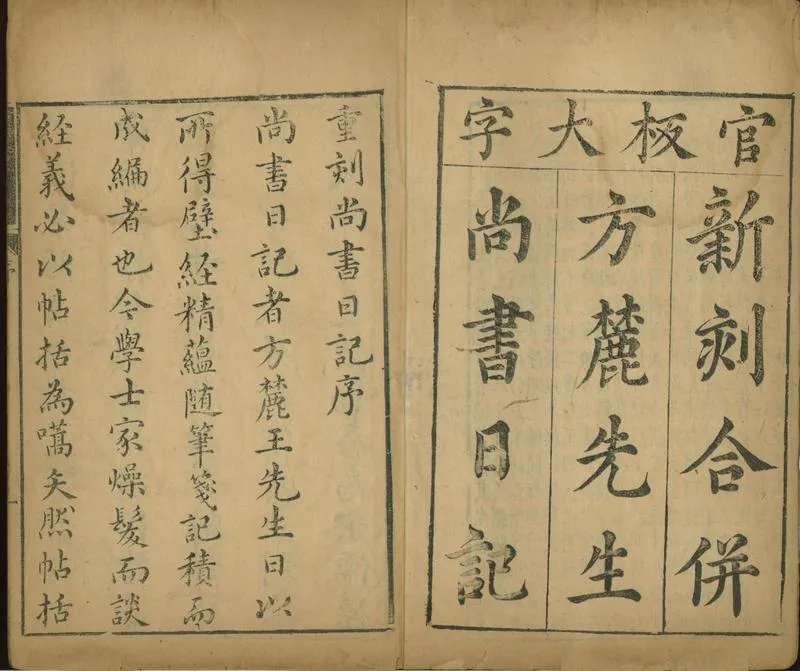 官板大字
新刻合併
方麓先生
尚書日記
重刻尚書日記序
尚書日記者方麓王先生日以
所得壁經精蘊随筆箋記積而
成編者也今學士家燥髮而談
経義必以帖括為嚆矢然帖括